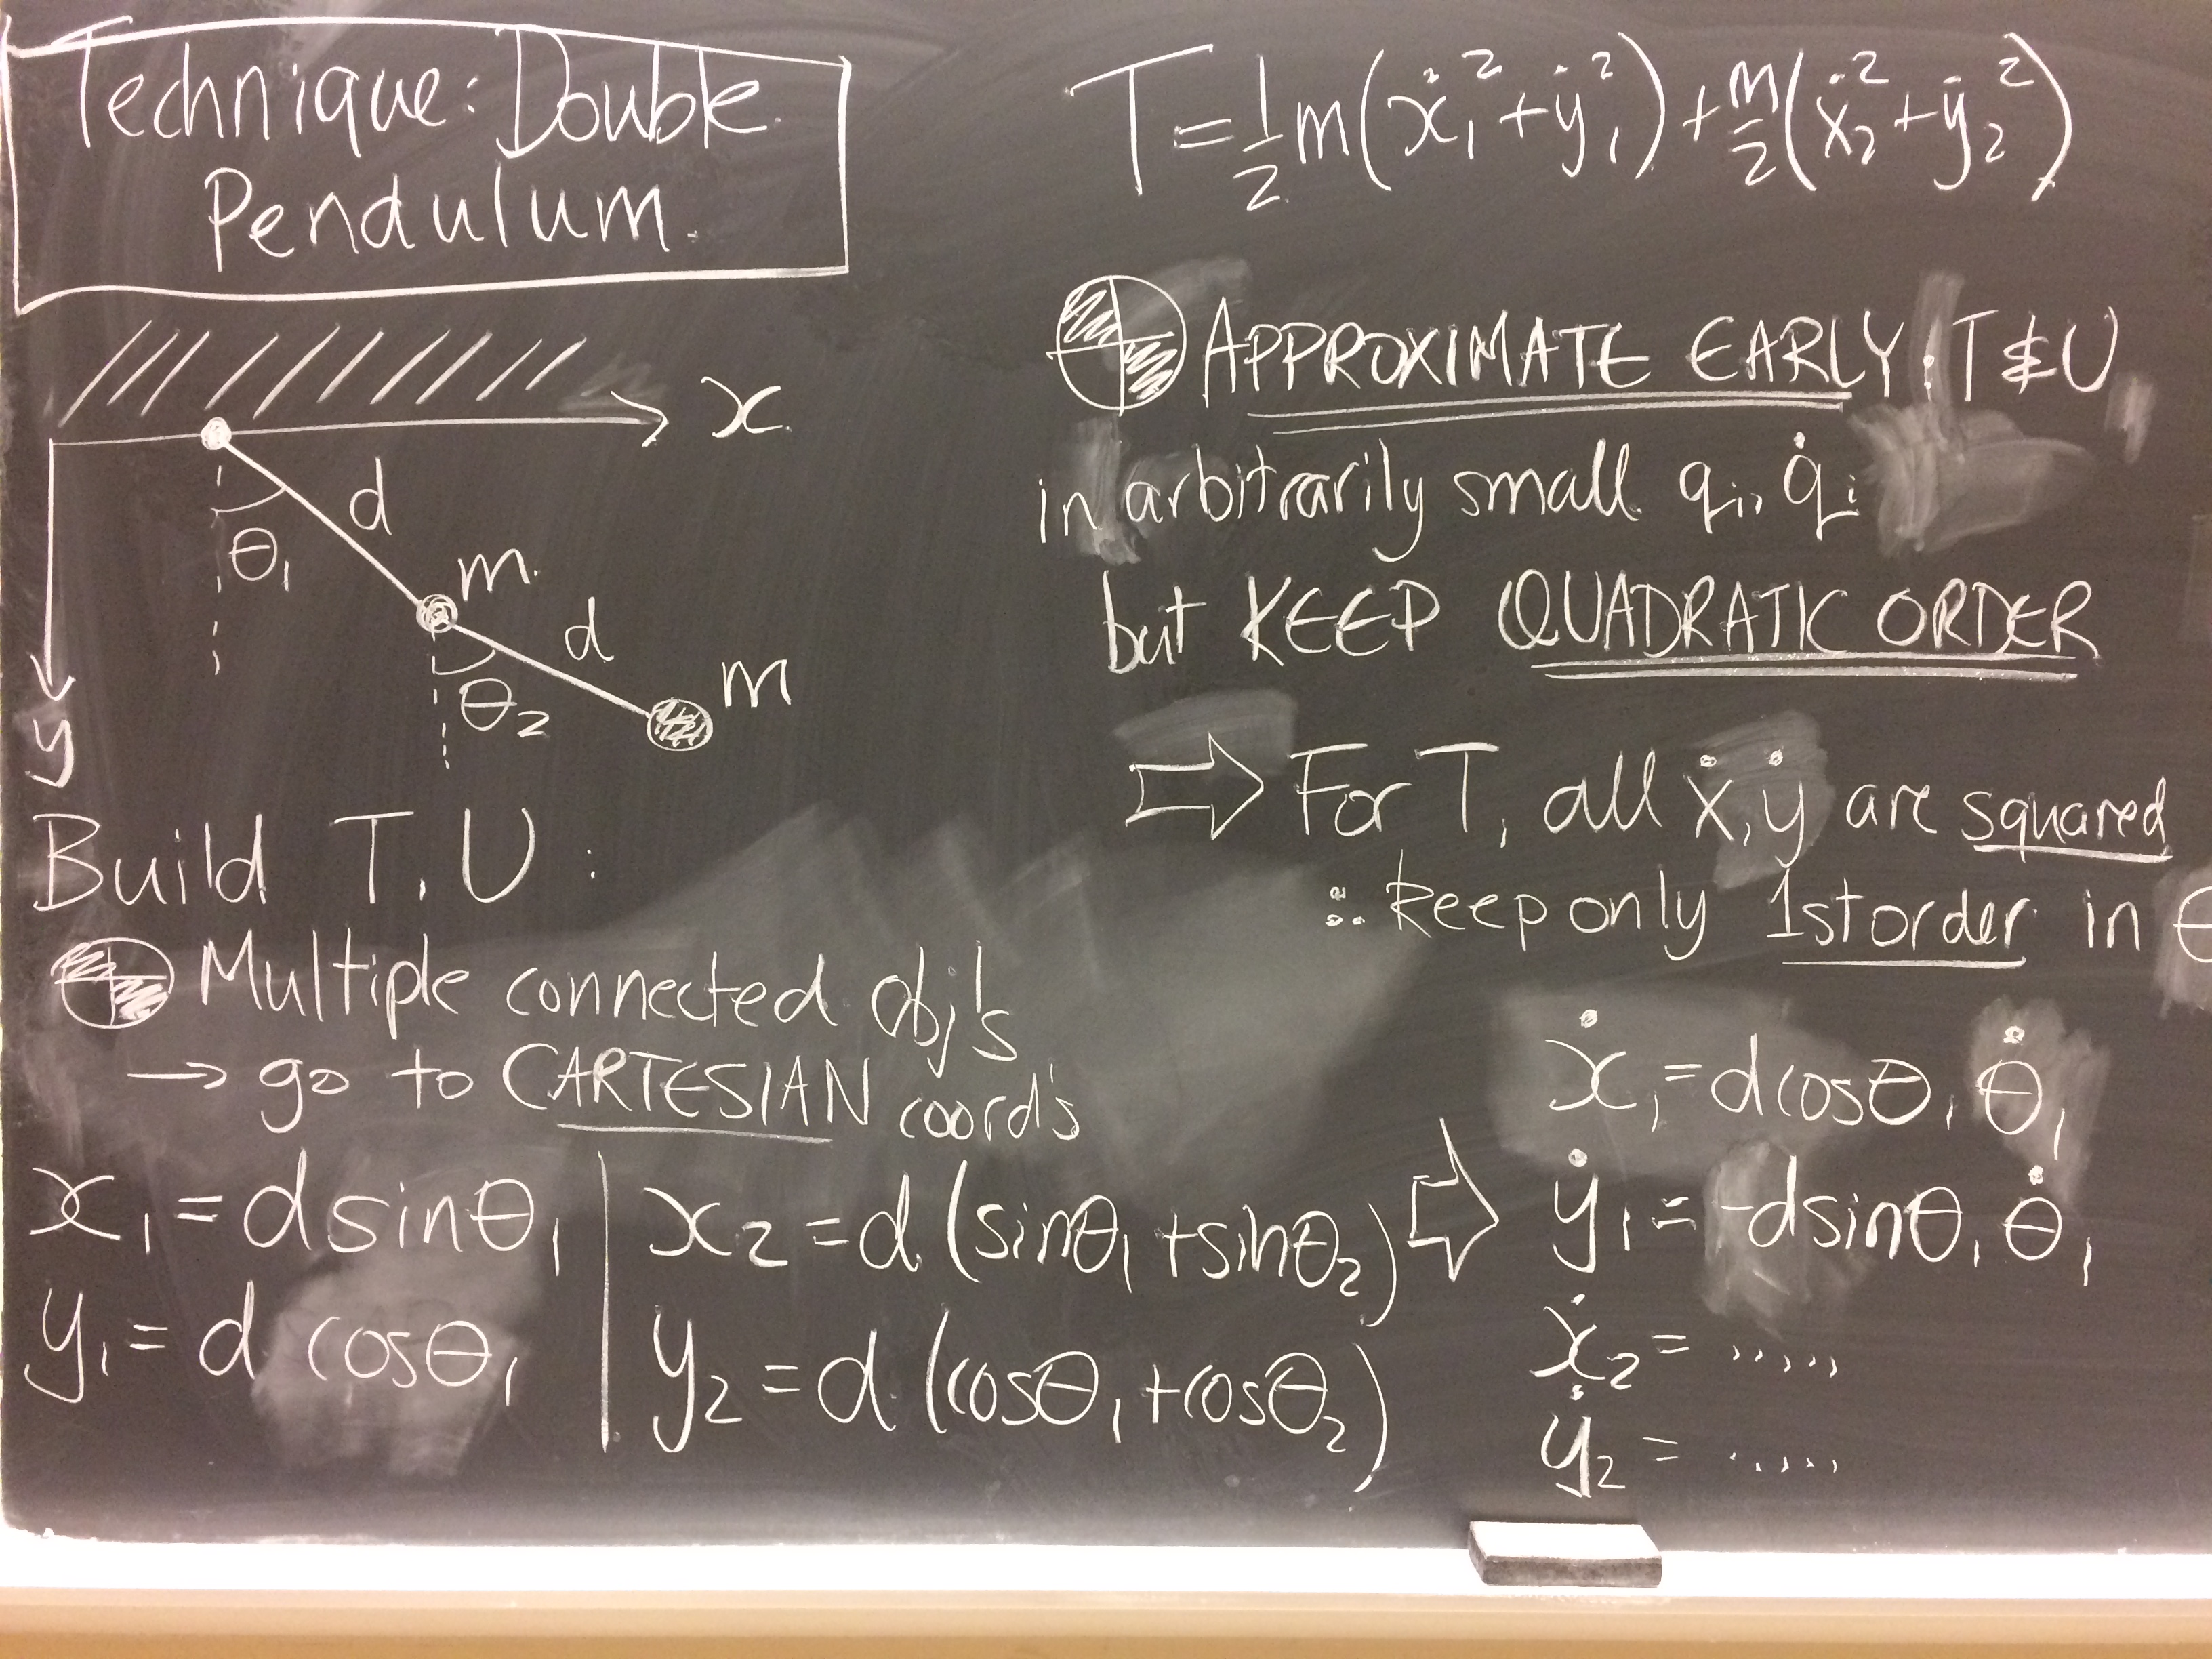 Technique: Double
Pendulum.
x
d
θ₁
m.
d
θ₂
m
y
Build T, U :
Multiple connected obj's
→ go to CARTESIAN coord's
x₁ = d sinθ₁
y₁ = d cosθ₁
x₂ = d (sinθ₁ + sinθ₂)
y₂ = d (cosθ₁ + cosθ₂)
T = 1/2 m(ẋ₁² + ẏ₁²) + m/2 (ẋ₂² + ẏ₂²)
APPROXIMATE EARLY: T & U
in arbitrarily small qᵢ, q̇ᵢ
but KEEP QUADRATIC ORDER
⇒ For T, all ẋ, ẏ are squared
∴ keep only 1st order in θ
⇒ ẋ₁ = d cosθ₁ θ̇₁
ẏ₁ = -d sinθ₁ θ̇₁
ẋ₂ = .....
ẏ₂ = .....